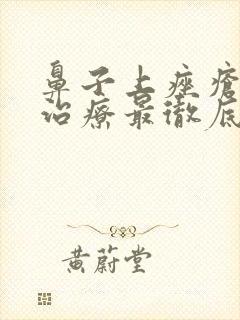 鼻子上痤瘡
治療最徹底
黃蔚堂